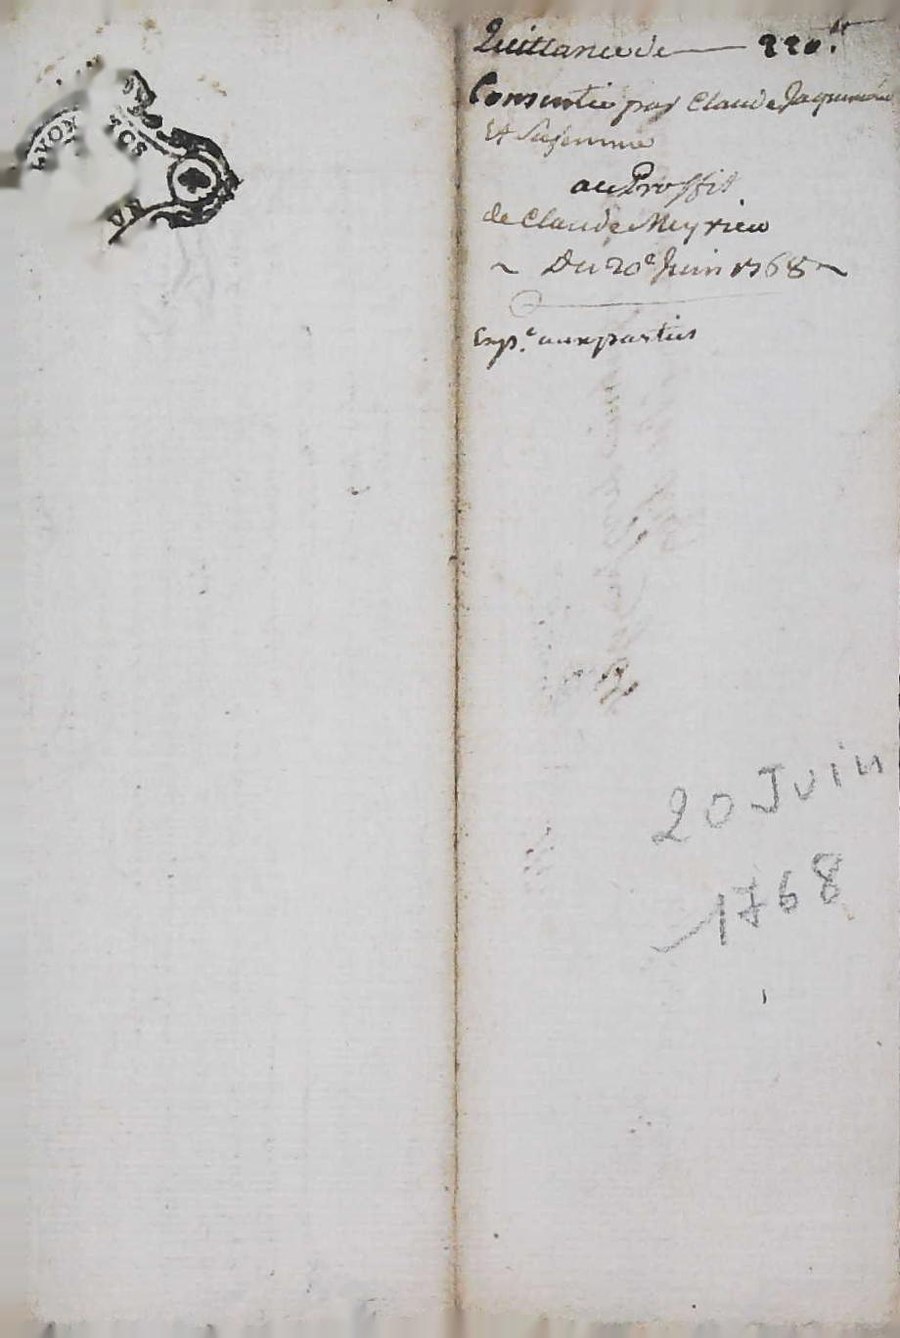 LYON
TOS
Quittance de — 220.tt
Consentie par Claude
Et Sa femme
au Proffit
de Claude Meyrieu
~ Du 20e Juin 1768 ~
Exp.e aux parties
20 Juin
1768